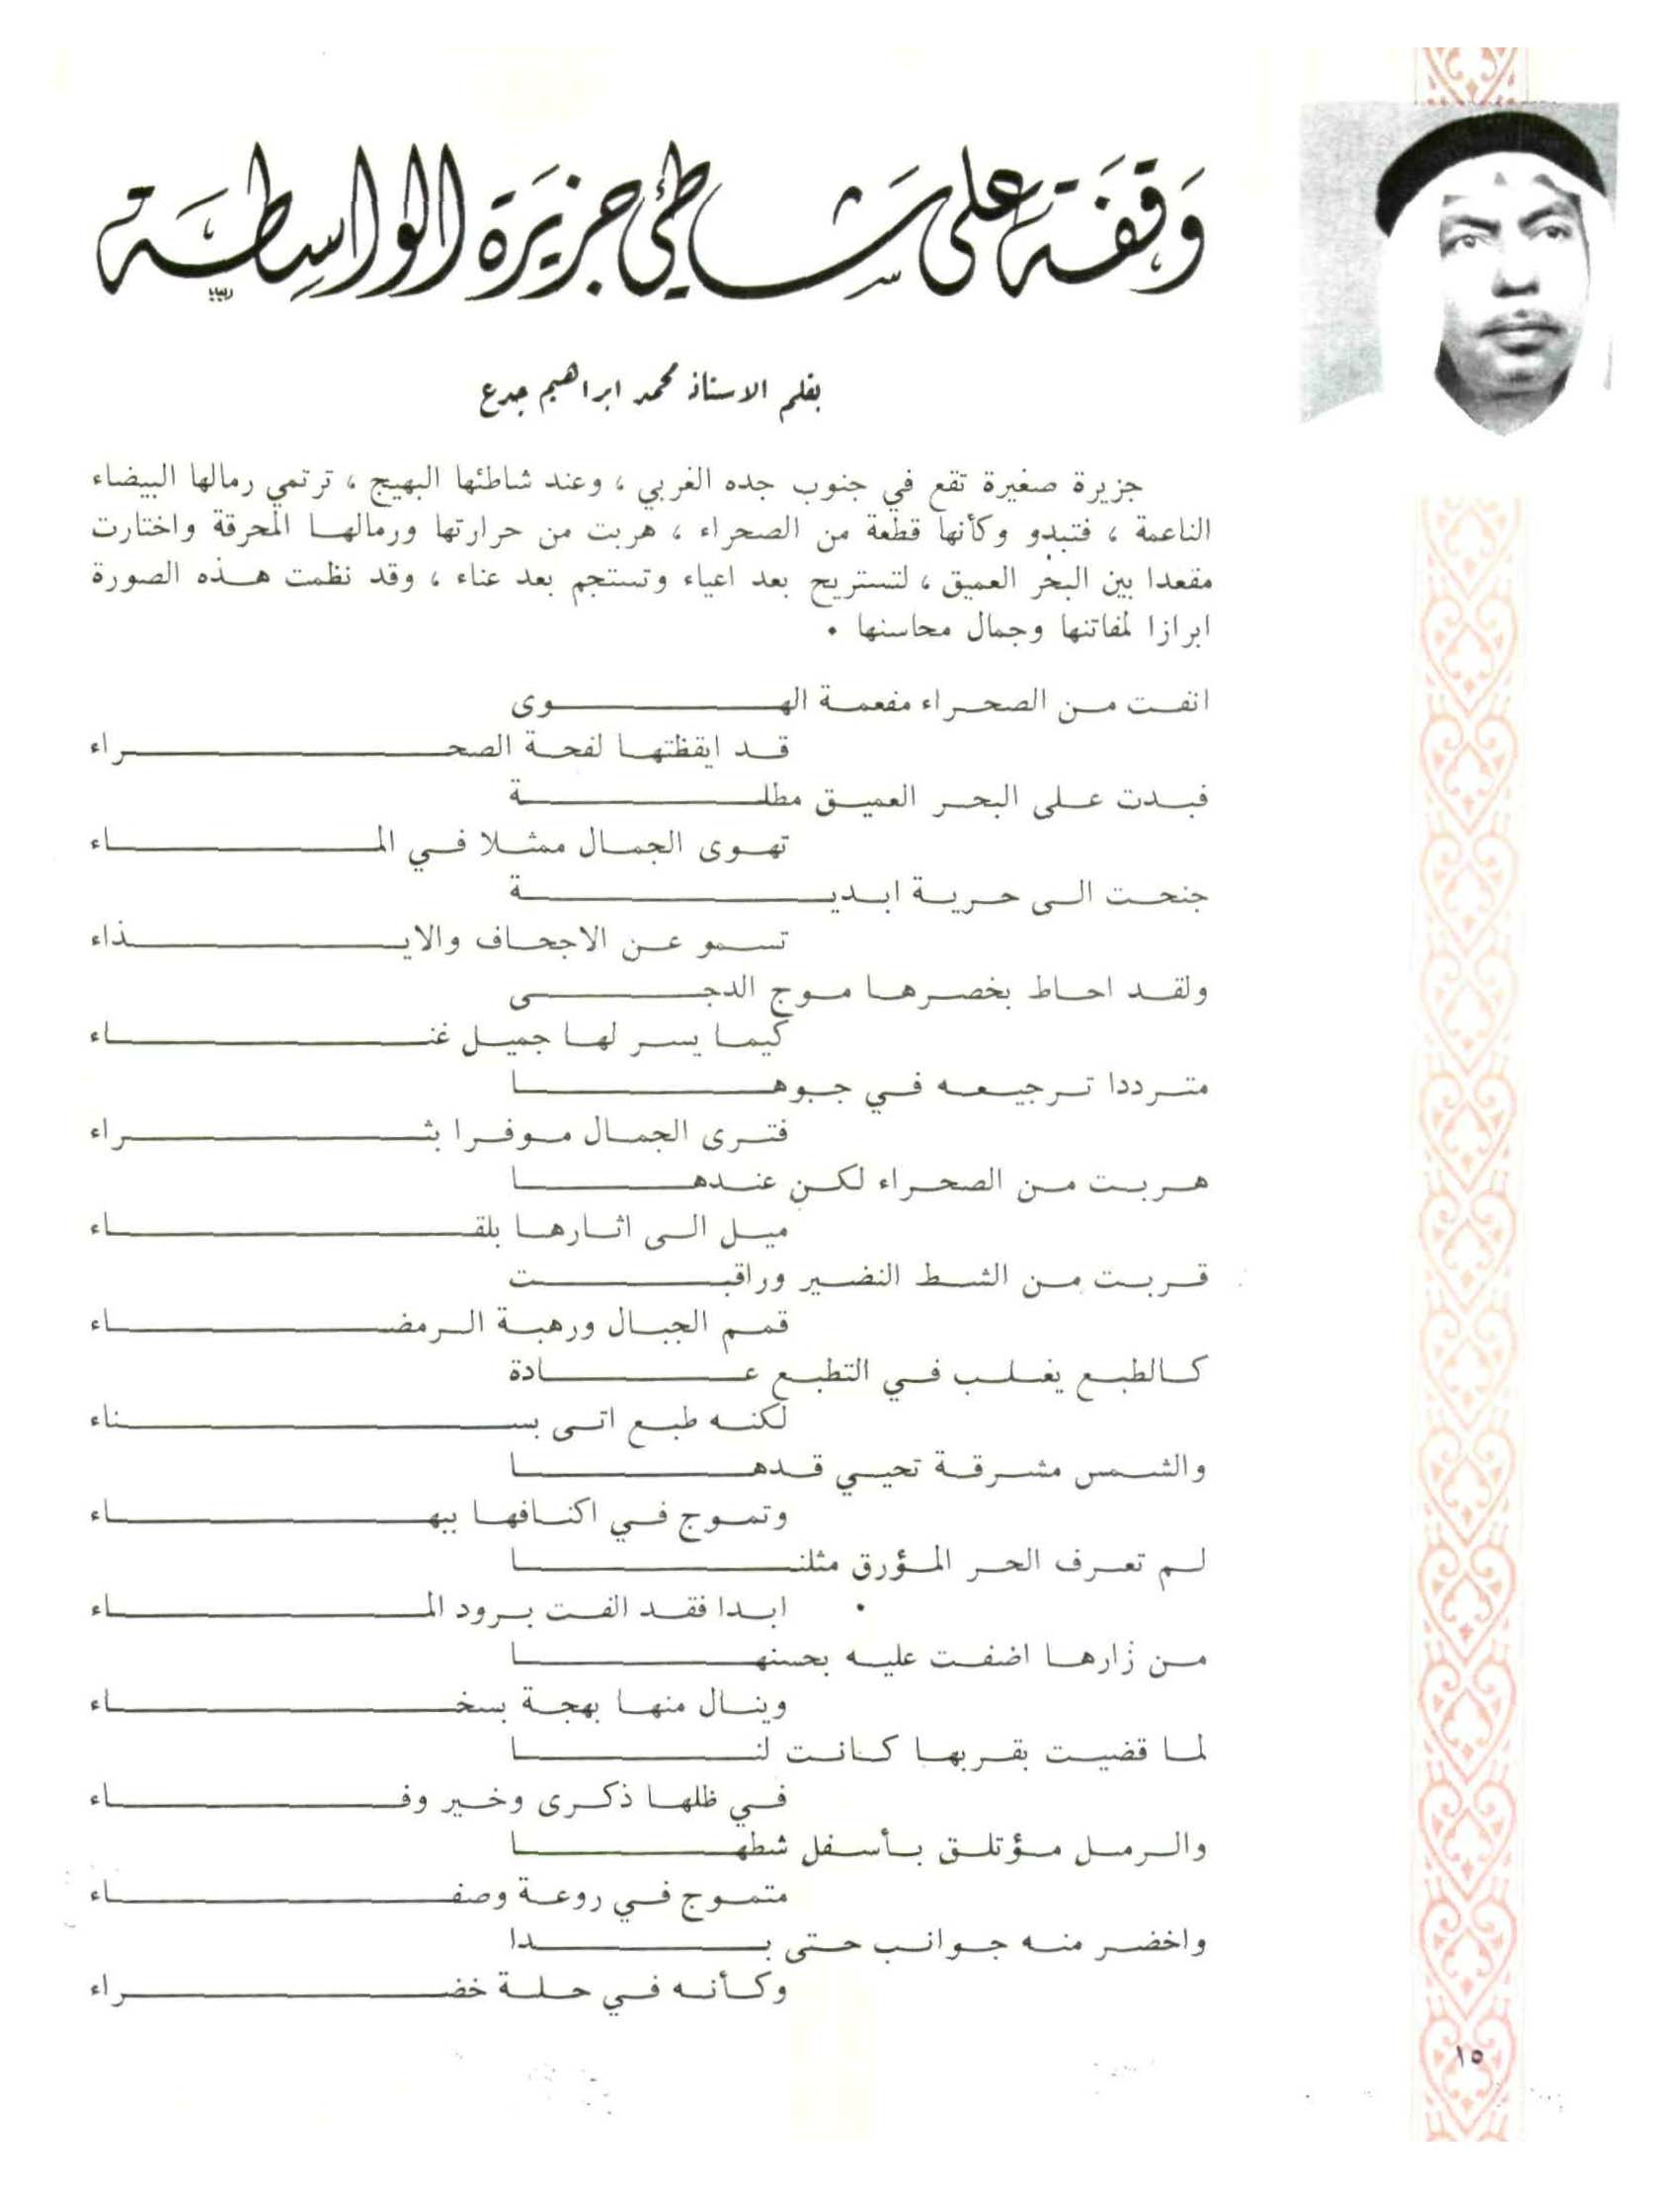 وقفة على شاطئ جزيرة الواسطية
بقلم الاستاذ محمد ابراهيم جدع
جزيرة صغيرة تقع في جنوب جده الغربي ، وعند شاطئها البهيج ، ترتمي رمالها البيضاء
الناعمة ، فتبدو وكأنها قطعة من الصحراء ، هربت من حرارتها ورمالها المحرقة واختارت
مقعدا بين البحر العميق ، لتستريح بعد اعياء وتستجم بعد عناء ، وقد نظمت هذه الصورة
ابرازا لمفاتنها وجمال محاسنها .
انفت من الصحراء مفعمة الهوى
قد ايقظتها لفحة الصحراء
فبدت على البحر العميق مطلة
تهوى الجمال ممثلا في الماء
جنحت الى حرية ابدية
تسمو عن الاجحاف والايذاء
ولقد احاط بخصرها موج الدجى
كيما يسر لها جميل غناء
مترددا ترجيعه في جوها
فترى الجمال موفرا بثراء
هربت من الصحراء لكن عندها
ميل الى اثارها بلقاء
قربت من الشط النضير وراقبت
قمم الجبال ورهبة الرمضاء
كالطبع يغلب في التطبع عادة
لكنه طبع اتى بسناء
والشمس مشرقة تحيي قدها
وتموج في اكنافها ببهاء
لم تعرف الحر المؤرق مثلنا
ابدا فقد الفت برود الماء
من زارها اضفت عليه بحسنها
وينال منها بهجة بسخاء
لما قضيت بقربها كانت لنا
في ظلها ذكرى وخير وفاء
والرمل مؤتلق بأسفل شطها
متموج في روعة وصفاء
واخضر منه جوانب حتى بدا
وكأنه في حلة خضراء
١٥